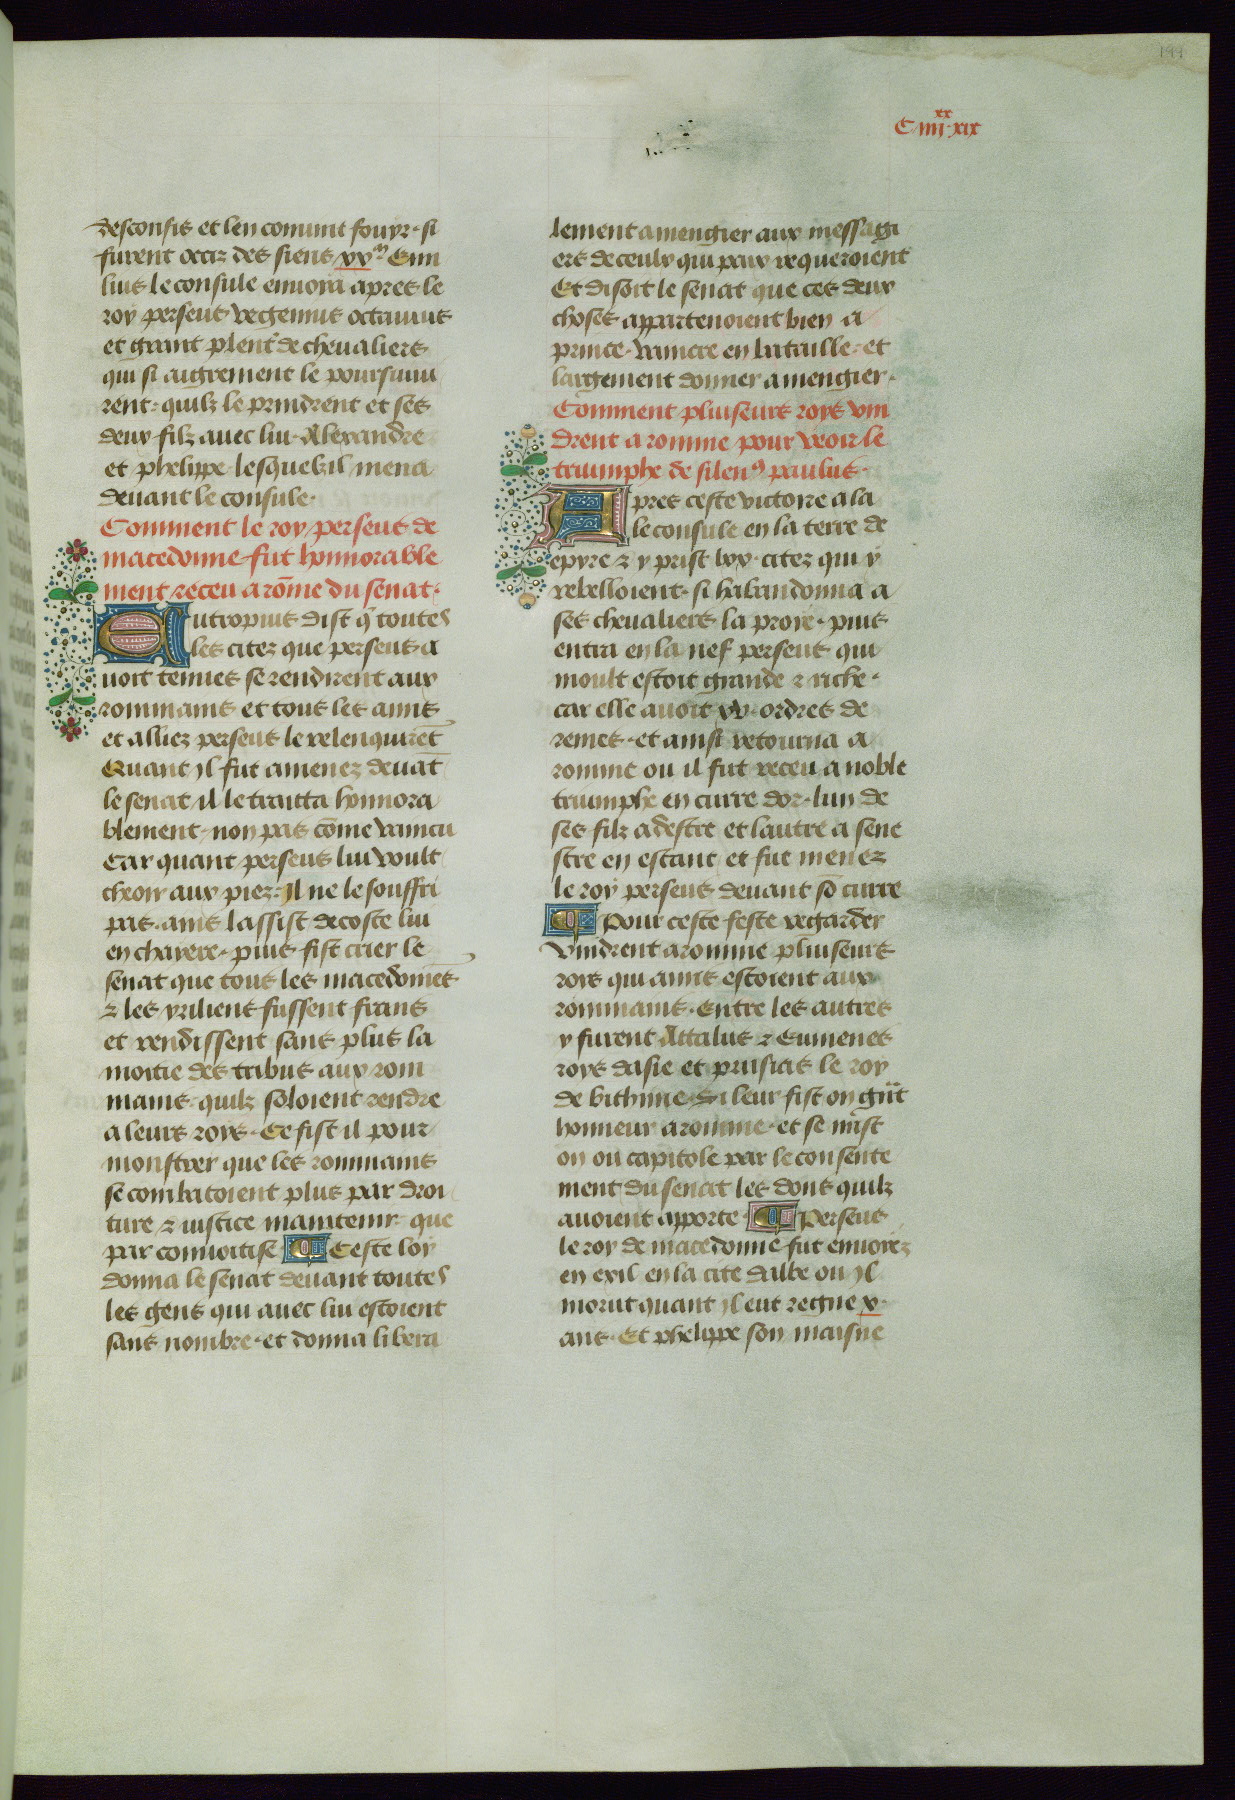 199
C iiii xx xix
desconfis et len conuint fouyr· si
furent occiz des siens xx m Emi
lius le consule enuoia apres le
roy perseus vegennus octauius
et grant plente de cheualiers
qui si aigrement le poursuiui
rent· quilz le prindrent et ses
deux filz auec lui· Alexandre
et phelippe lesquelz il mena
deuant le consule·
Comment le roy perseus de
macedonne fut honnorable
ment receu a rōme du senat·
Eutropius dist q̄ toutes
les citez que perseus a
uoit tenues se rendirent aux
rommains et tous les amis
et alliez perseus le relenquirēt
Quant il fut amenez deuāt
le senat il le traitta honnora
blement· non pas cōme vaincu
Car quant perseus lui voult
cheoir aux piez· Il ne le souffri
pas· ains lassist decoste lui
en chayere· puis fist crier le
senat que tous les macedoniēs
⁊ les yrilient fussent frans
et rendissent sans plus la
moitie des tribus aux rom
mains· quilz soloient rendre
a leurs roys· Ce fist il pour
monstrer que les rommains
se combatoient plus par droi
ture ⁊ iustice maintenir que
par conuoitise ¶ Ceste loy
donna le senat deuant toutes
les gens qui auec lui estoient
sans nombre· et donna libera
lement a mengier aux messagi
ers de ceulx qui paix requeroient
Et disoit le senat que ces deux
choses appartenoient bien a
prince· vaincre en bataille· et
largement donner a mengier·
Comment pluiseurs roys vin
drent a romme pour veoir le
triumphe de silenꝰ paulus·
Apres ceste victoire ala
le consule en la terre de
epyre ⁊ y prist lxx· citez qui y
rebelloient· si habandonna a
ses cheualiers la proye· puis
entra en la nef perseus qui
moult estoit grande ⁊ riche·
car elle auoit xv· ordres de
remes· et ainsi retourna a
romme ou il fut receu a noble
triumphe en curre dor· lun de
ses filz a destre et lautre a sene
stre en estant et fut menez
le roy perseus deuant sō curre
¶ Pour ceste feste regarder
vindrent a romme pluiseurs
roys qui amis estoient aux
rommains· Entre les autres
y furent Attalus ⁊ Eumenes
roys dasie et prusias le roy
de bithinie· Si leur fist on gr̄nt
honneur a romme· et se mist
on ou capitole par le consente
ment du senat les dons quilz
auoient apporte· ¶ Perseus
le roy de macedonne fut enuoiez
en exil en la cite dalbe ou il
morut quant il eut regne x·
ans· Et phelippe son maisne